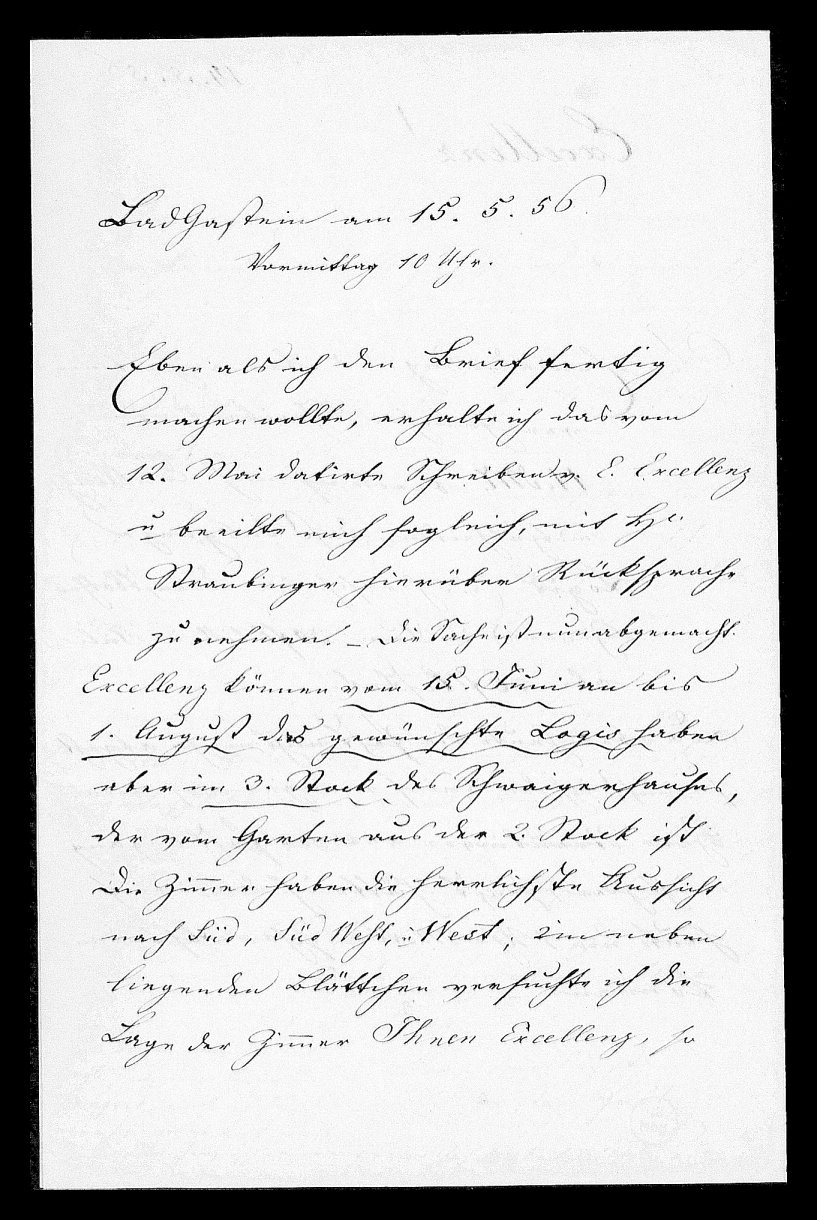 BadGastein am 15. 5. 56.
Vormittag 10 Uhr.
Eben als ich den Brief fertig
machen wollte, erhalte ich das vom
12. Mai datirte Schreiben v. E. Excellenz
u beeilte mich sogleich, mit H.
Straubinger hierüber Rücksprache
zu nehmen. – Die Sache ist nun abgemacht.
Excellenz können vom 15. Juni an bis
1. August das gewünschte Logis haben
aber im 3. Stock des Schwaigerhauses,
der vom Garten aus der 2. Stock ist
Die Zimmer haben die herrlichste Aussicht
nach Süd, Süd West, u West; im neben
liegenden Blättchen versuchte ich die
Lage der Zimmer Ihnen Excellenz, so